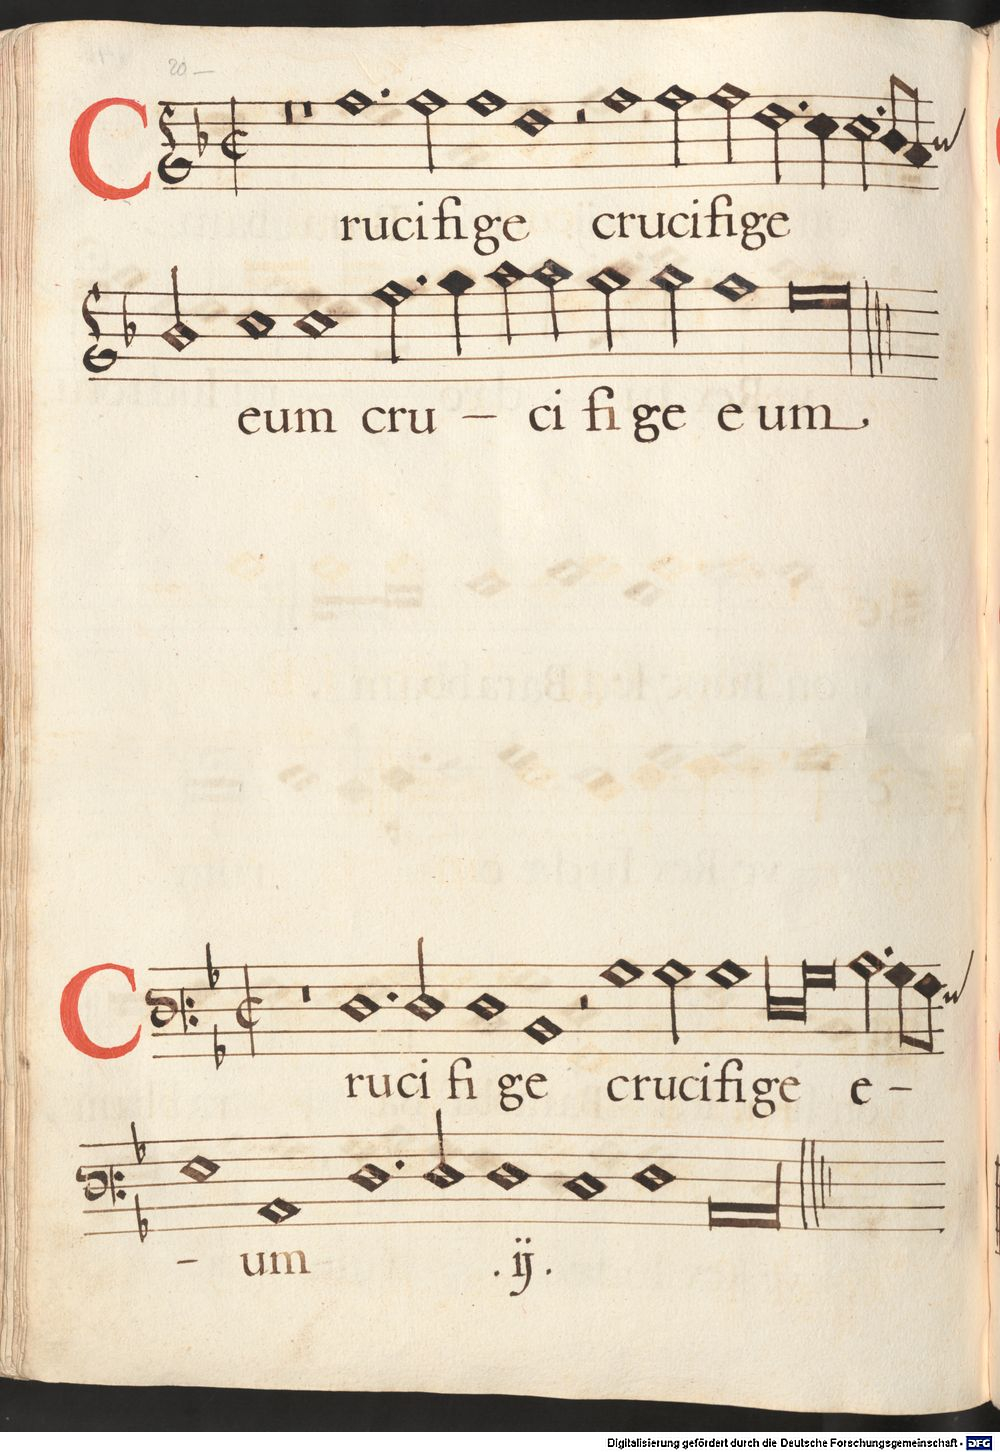 20
Crucifige crucifige
eum cru – ci fi ge eum
Cruci fi ge crucifige e –
– um .ij.
Digitalisierung gefördert durch die Deutsche Forschungsgemeinschaft - DFG